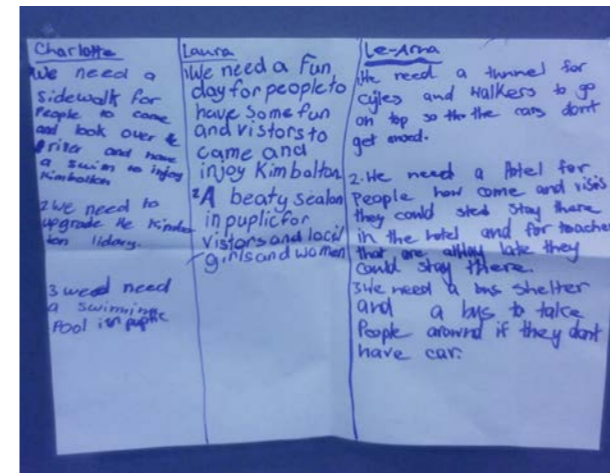 Charlotte
We need a
sidewalk for
People to come
and look over the
river and have
a swim to injoy
Kimbolton
2 We need to
upgrade the Kimbol
ton lidary.
3 weed need
a swiming
Pool in puplic
Laura
1 We need a fun
day for people to
have some fun
and vistors to
came and
injoy Kimbolton
2 A beaty sealon
in puplic for
vistors and locil
girls and women
Le-Arna
1. We need a tunnel for
Cyles and walkers to go
on top so the the cars dont
get mad.
2. We need a Hotel for
People how come and visis
they could sted stay there
in the hotel and for teacher
that are allway late they
could stay there.
3 We need a bus shelter
and a bus to take
People around if they dont
have car.